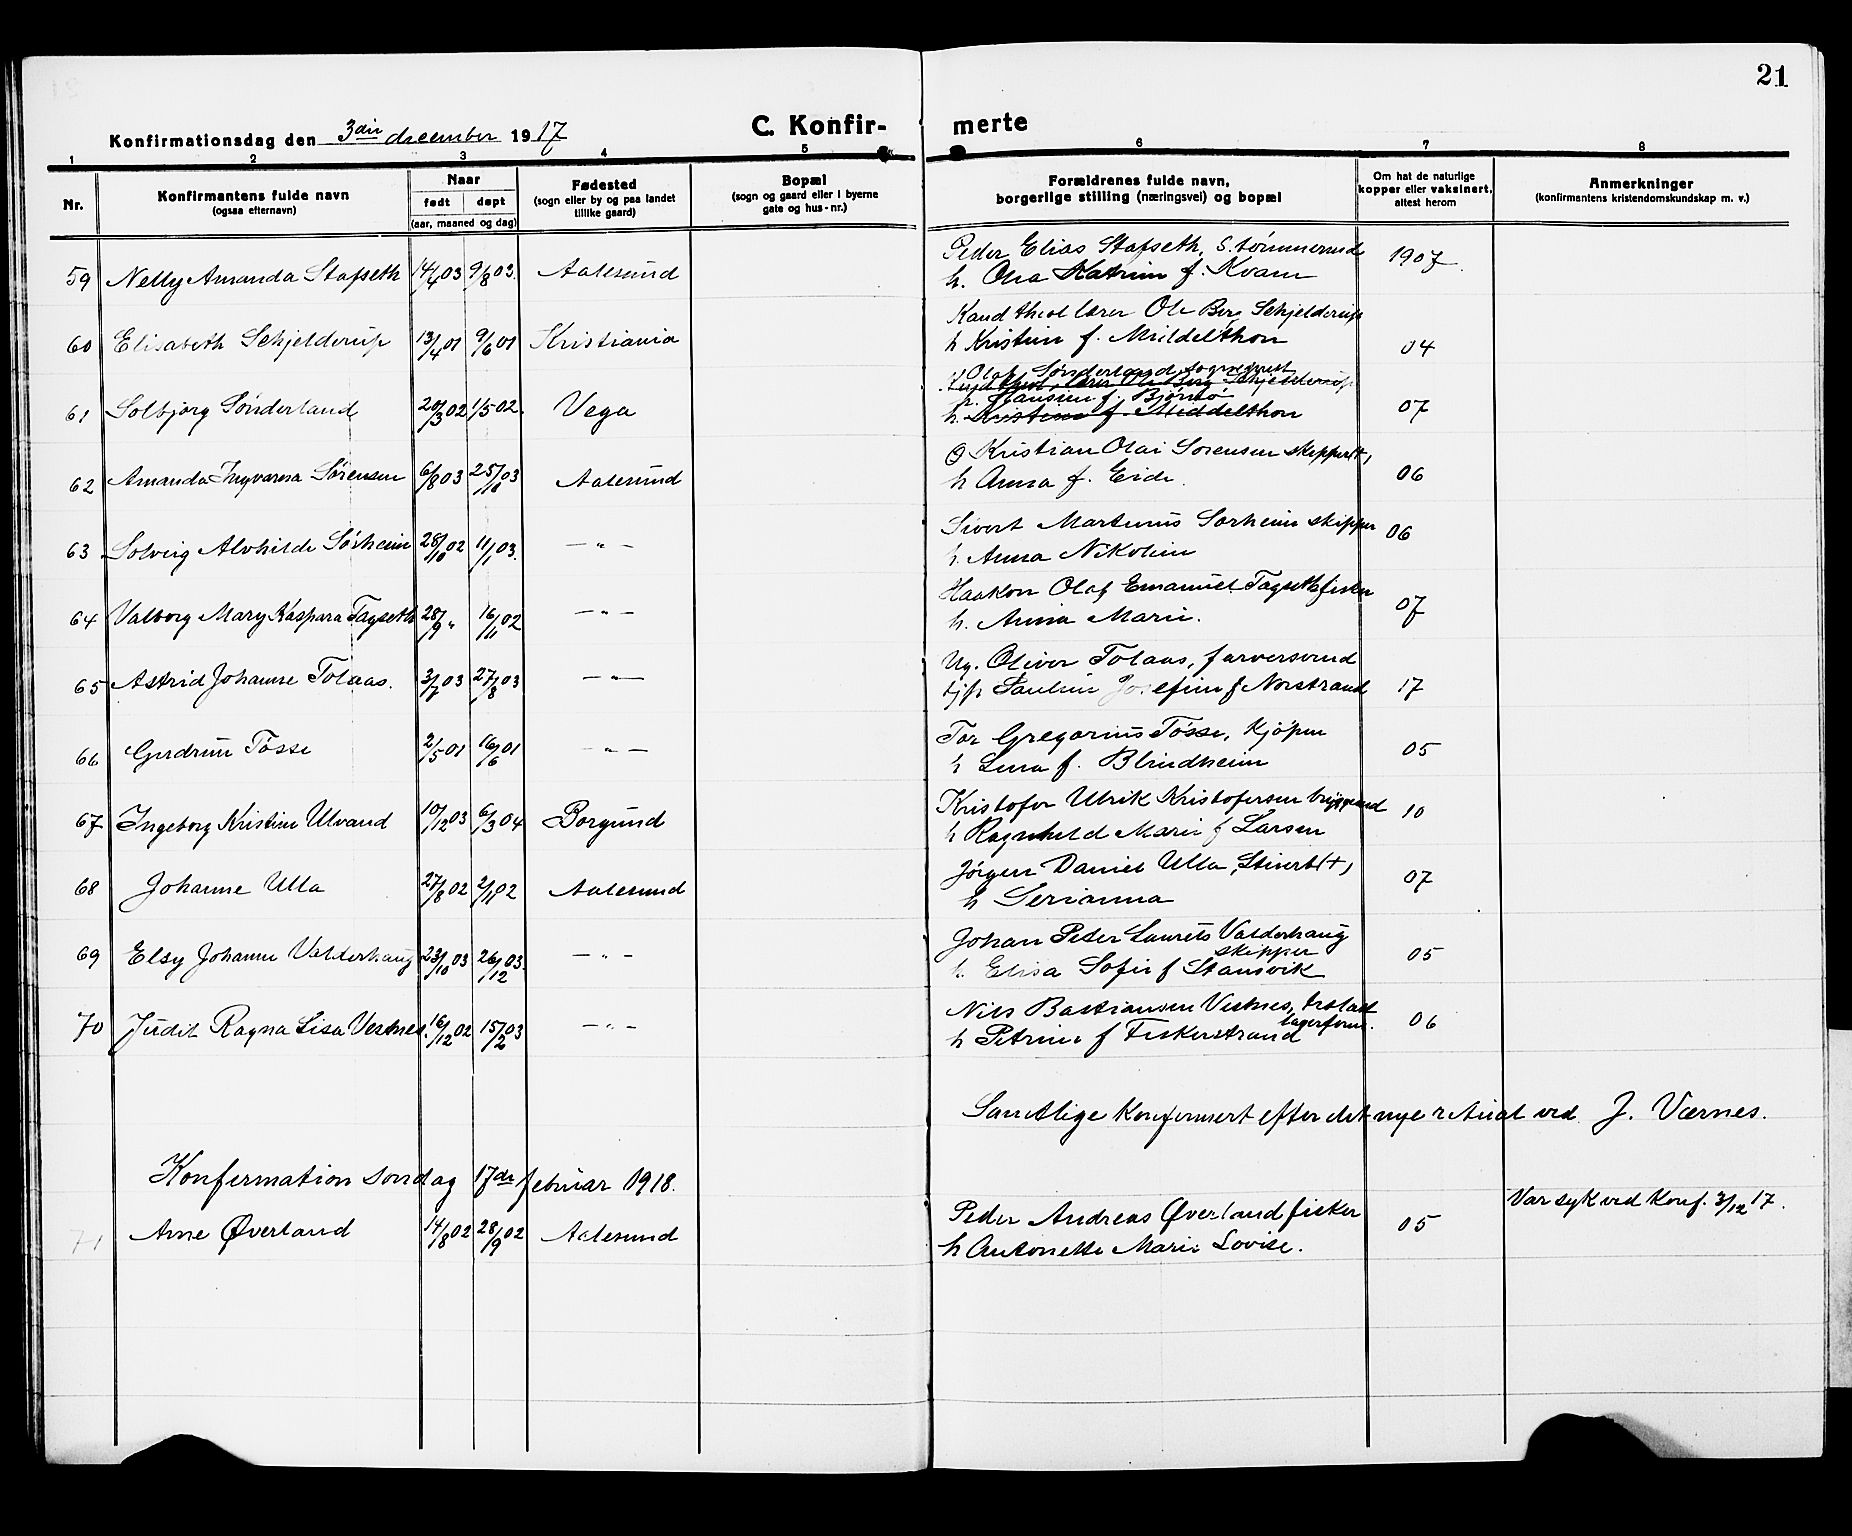 21
Konfirmationsdag den 3die december 1917
C. Konfirmerte
1 2 3 4 5 6 7 8
Nr.
Konfirmantens fulde navn
(ogsaa efternavn)
Naar
født døpt
(aar, maaned og dag)
Fødested
(sogn eller by og paa landet
tillike gaard)
Bopæl
(sogn og gaard eller i byerne
gate og hus-nr.)
Forældrenes fulde navn,
borgerlige stilling (næringsvei) og bopæl
Om hat de naturlige
kopper eller vaksinert,
attest herom
Anmerkninger
(konfirmantens kristendomskundskap m. v.)
Peder Elias Stafseth, S. tømmermd
59 Nelly Amanda Stafseth 14/4 03 9/8 03. Aalesund h. Olea Katrine f. Kvam 1907.
Kand theol lærer Ole Berg Schjelderup
60 Elisabeth Schjelderup 13/4 01 9/6 01 Kristiania h Kristine f. Middelthon 04
Olaf Sønderland, sogneprest
Kand theol, lærer Ole Berg Schjelderup
h. Hansine f. Bjørnø
61 Solbjørg Sønderland 20/3 02 1/5 02. Vega h. Kristine f. Middelthon 07
Kristian Olai Sørensen skipper (+)
62 Amanda Ingvarna Sørensen 6/8 03 25/10 03 Aalesund h Anna f. Eide. 06
Sivert Martinus Sørheim skipper
63 Solveig Alvhilde Sørheim 28/10 02 11/1 03. — " — h. Anna Nikoline 06
Haakon Olaf Emanuel Tagseth fisker
64 Valborg Mary Kaspara Tagseth 28/9 " 16/11 02 — " — h. Anna Marie. 07
Ug. Oliver Tolaas, farversvend
65 Astrid Johanne Tolaas. 3/7 03 27/8 03 — " — tjp Pauline Josefine f Norstrand 17
Tor Gregorius Tøsse, kjøpm
66 Gudrun Tøsse 2/5 01 16/6 01 — " — h Lina f. Blindheim 05
Kristofer Ulrik Kristofersen bryggemd
67 Ingeborg Kristine Ulvand 10/12 03 6/3 04 Borgund h Ragnhild Marie f Larsen 10
Jørgen Daniel Ulla, Stuert (+)
68 Johanne Ulla 27/8 02 2/11 02 Aalesund h Serianna 07
Johan Peder Laurits Valderhaug
skipper
69 Elsy Johanne Valderhaug 23/10 03 26/12 03. — " — h. Elisa Sofie f Stansvik 05
Nils Bastiansen Vestnes,
lagerform.
70 Judit Ragna Lisa Vestnes. 16/12 02 15/2 03 — " — h Petrine f Fiskerstrand 06
Samtlige konfirmert efter det nye ritual ved J. Værnes.
Konfirmation søndag 17de februar 1918.
Peder Andreas Øverland fisker Var syk ved konf. 3/12 17.
71 Arne Øverland 14/8 02 28/9 02 Aalesund h Antonette Marie Lovise. 05